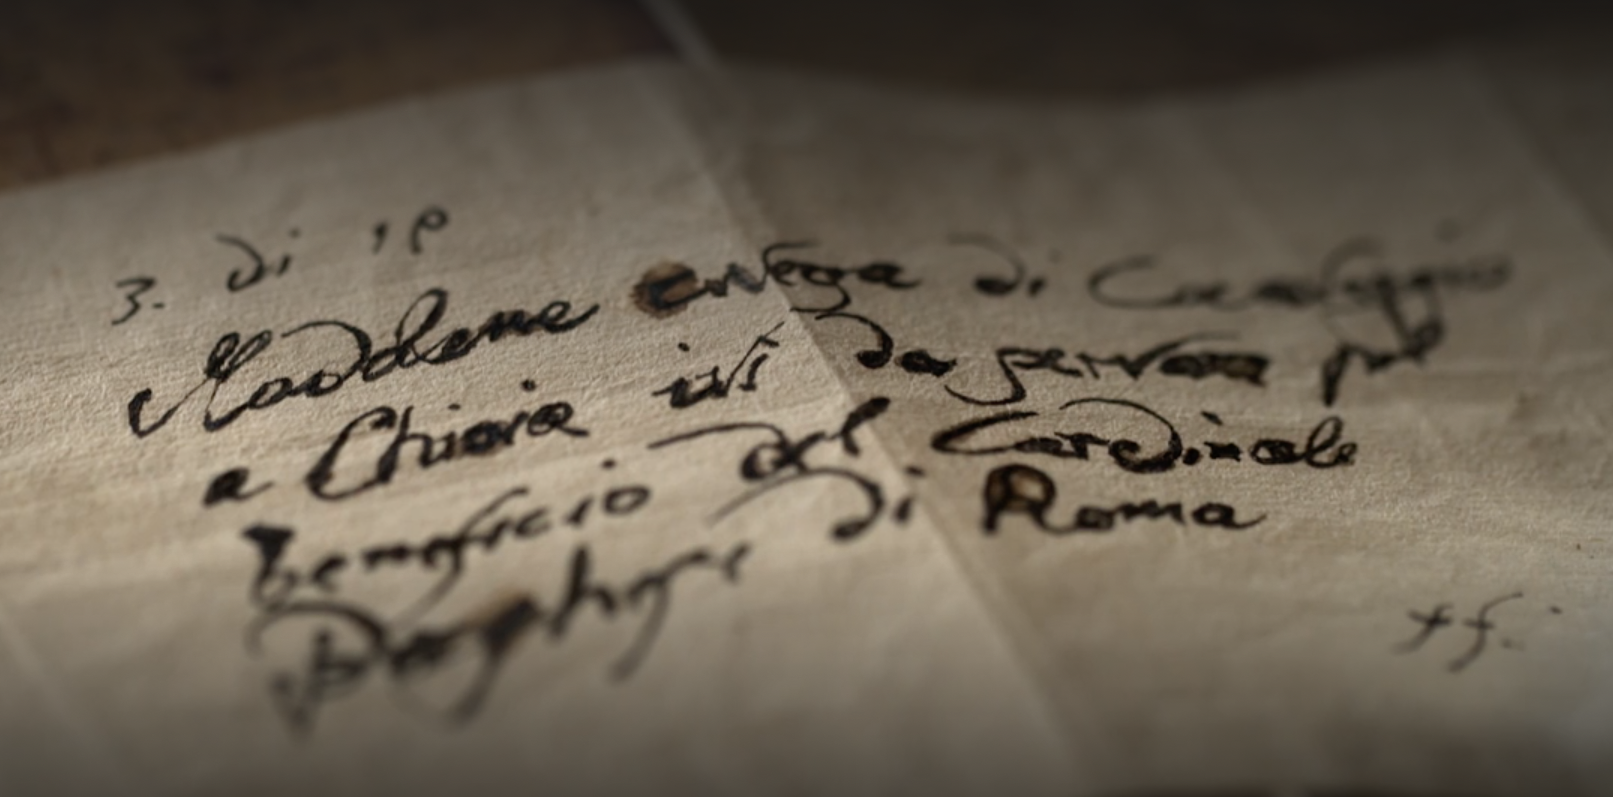 3. di
Maddalena di Caravaggio
a Chiaia ivi da servare pel
beneficio del Cardinale
Borghese di Roma